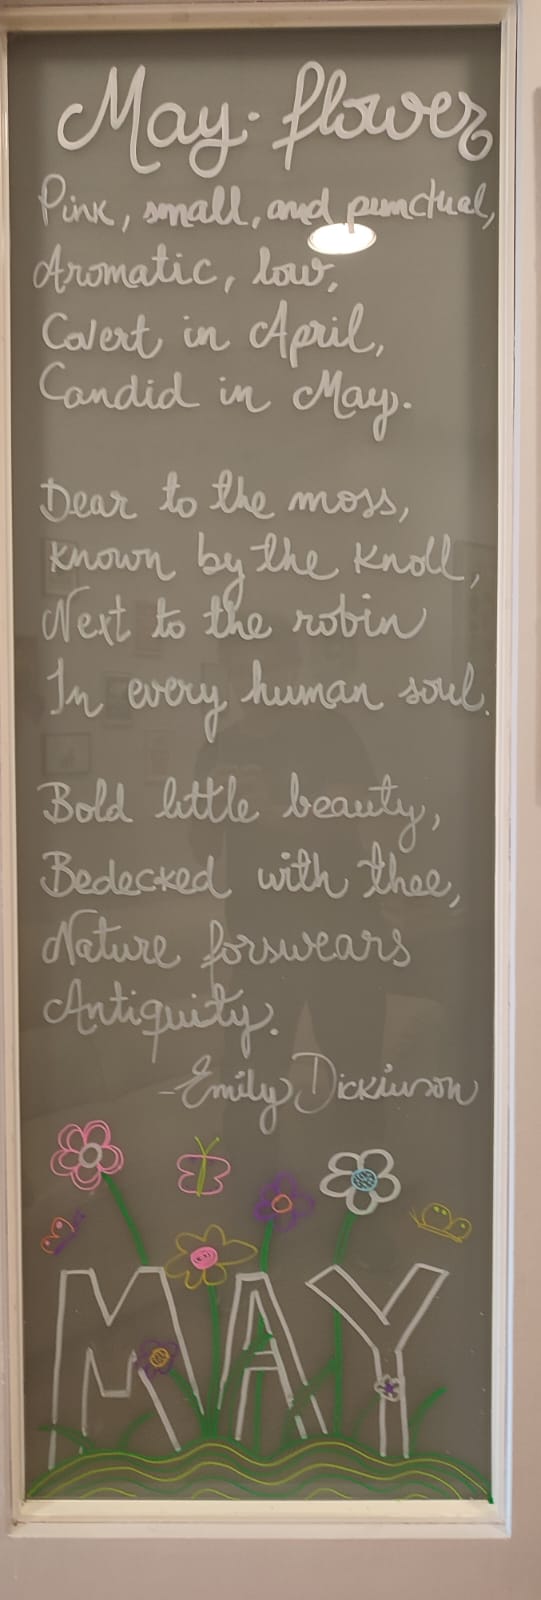 May-flower
Pink, small, and punctual,
Aromatic, low,
Covert in April,
Candid in May.
Dear to the moss,
known by the knoll,
Next to the robin
In every human soul.
Bold little beauty,
Bedecked with thee,
Nature forswears
Antiquity.
-Emily Dickinson
MAY